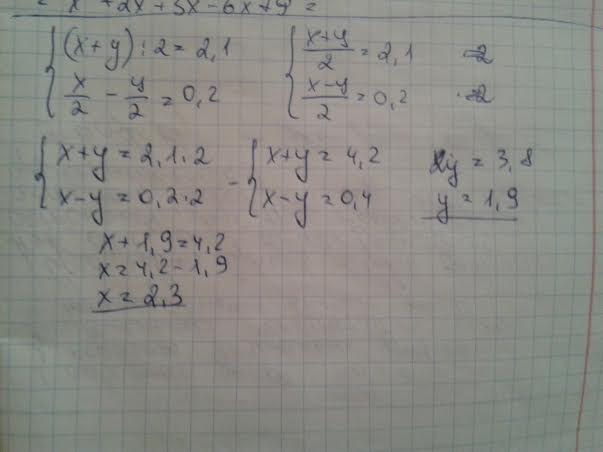 = x + 2x + 3x - 6x + 9 =
{ (x+y) : 2 = 2,1
x/2 - y/2 = 0,2
{ (x+y)/2 = 2,1 ·2
(x-y)/2 = 0,2 ·2
{ x+y = 2,1·2
x-y = 0,2·2
- { x+y = 4,2
x-y = 0,4
2y = 3,8
y = 1,9
x+1,9=4,2
x=4,2-1,9
x= 2,3